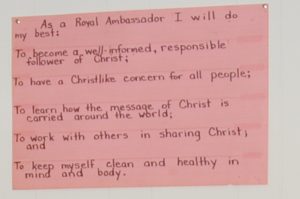 As a Royal Ambassador I will do
my best:
To become a well-informed, responsible
follower of Christ;
To have a Christlike concern for all people;
To learn how the message of Christ is
carried around the world;
To work with others in sharing Christ;
and
To keep myself clean and healthy in
mind and body.